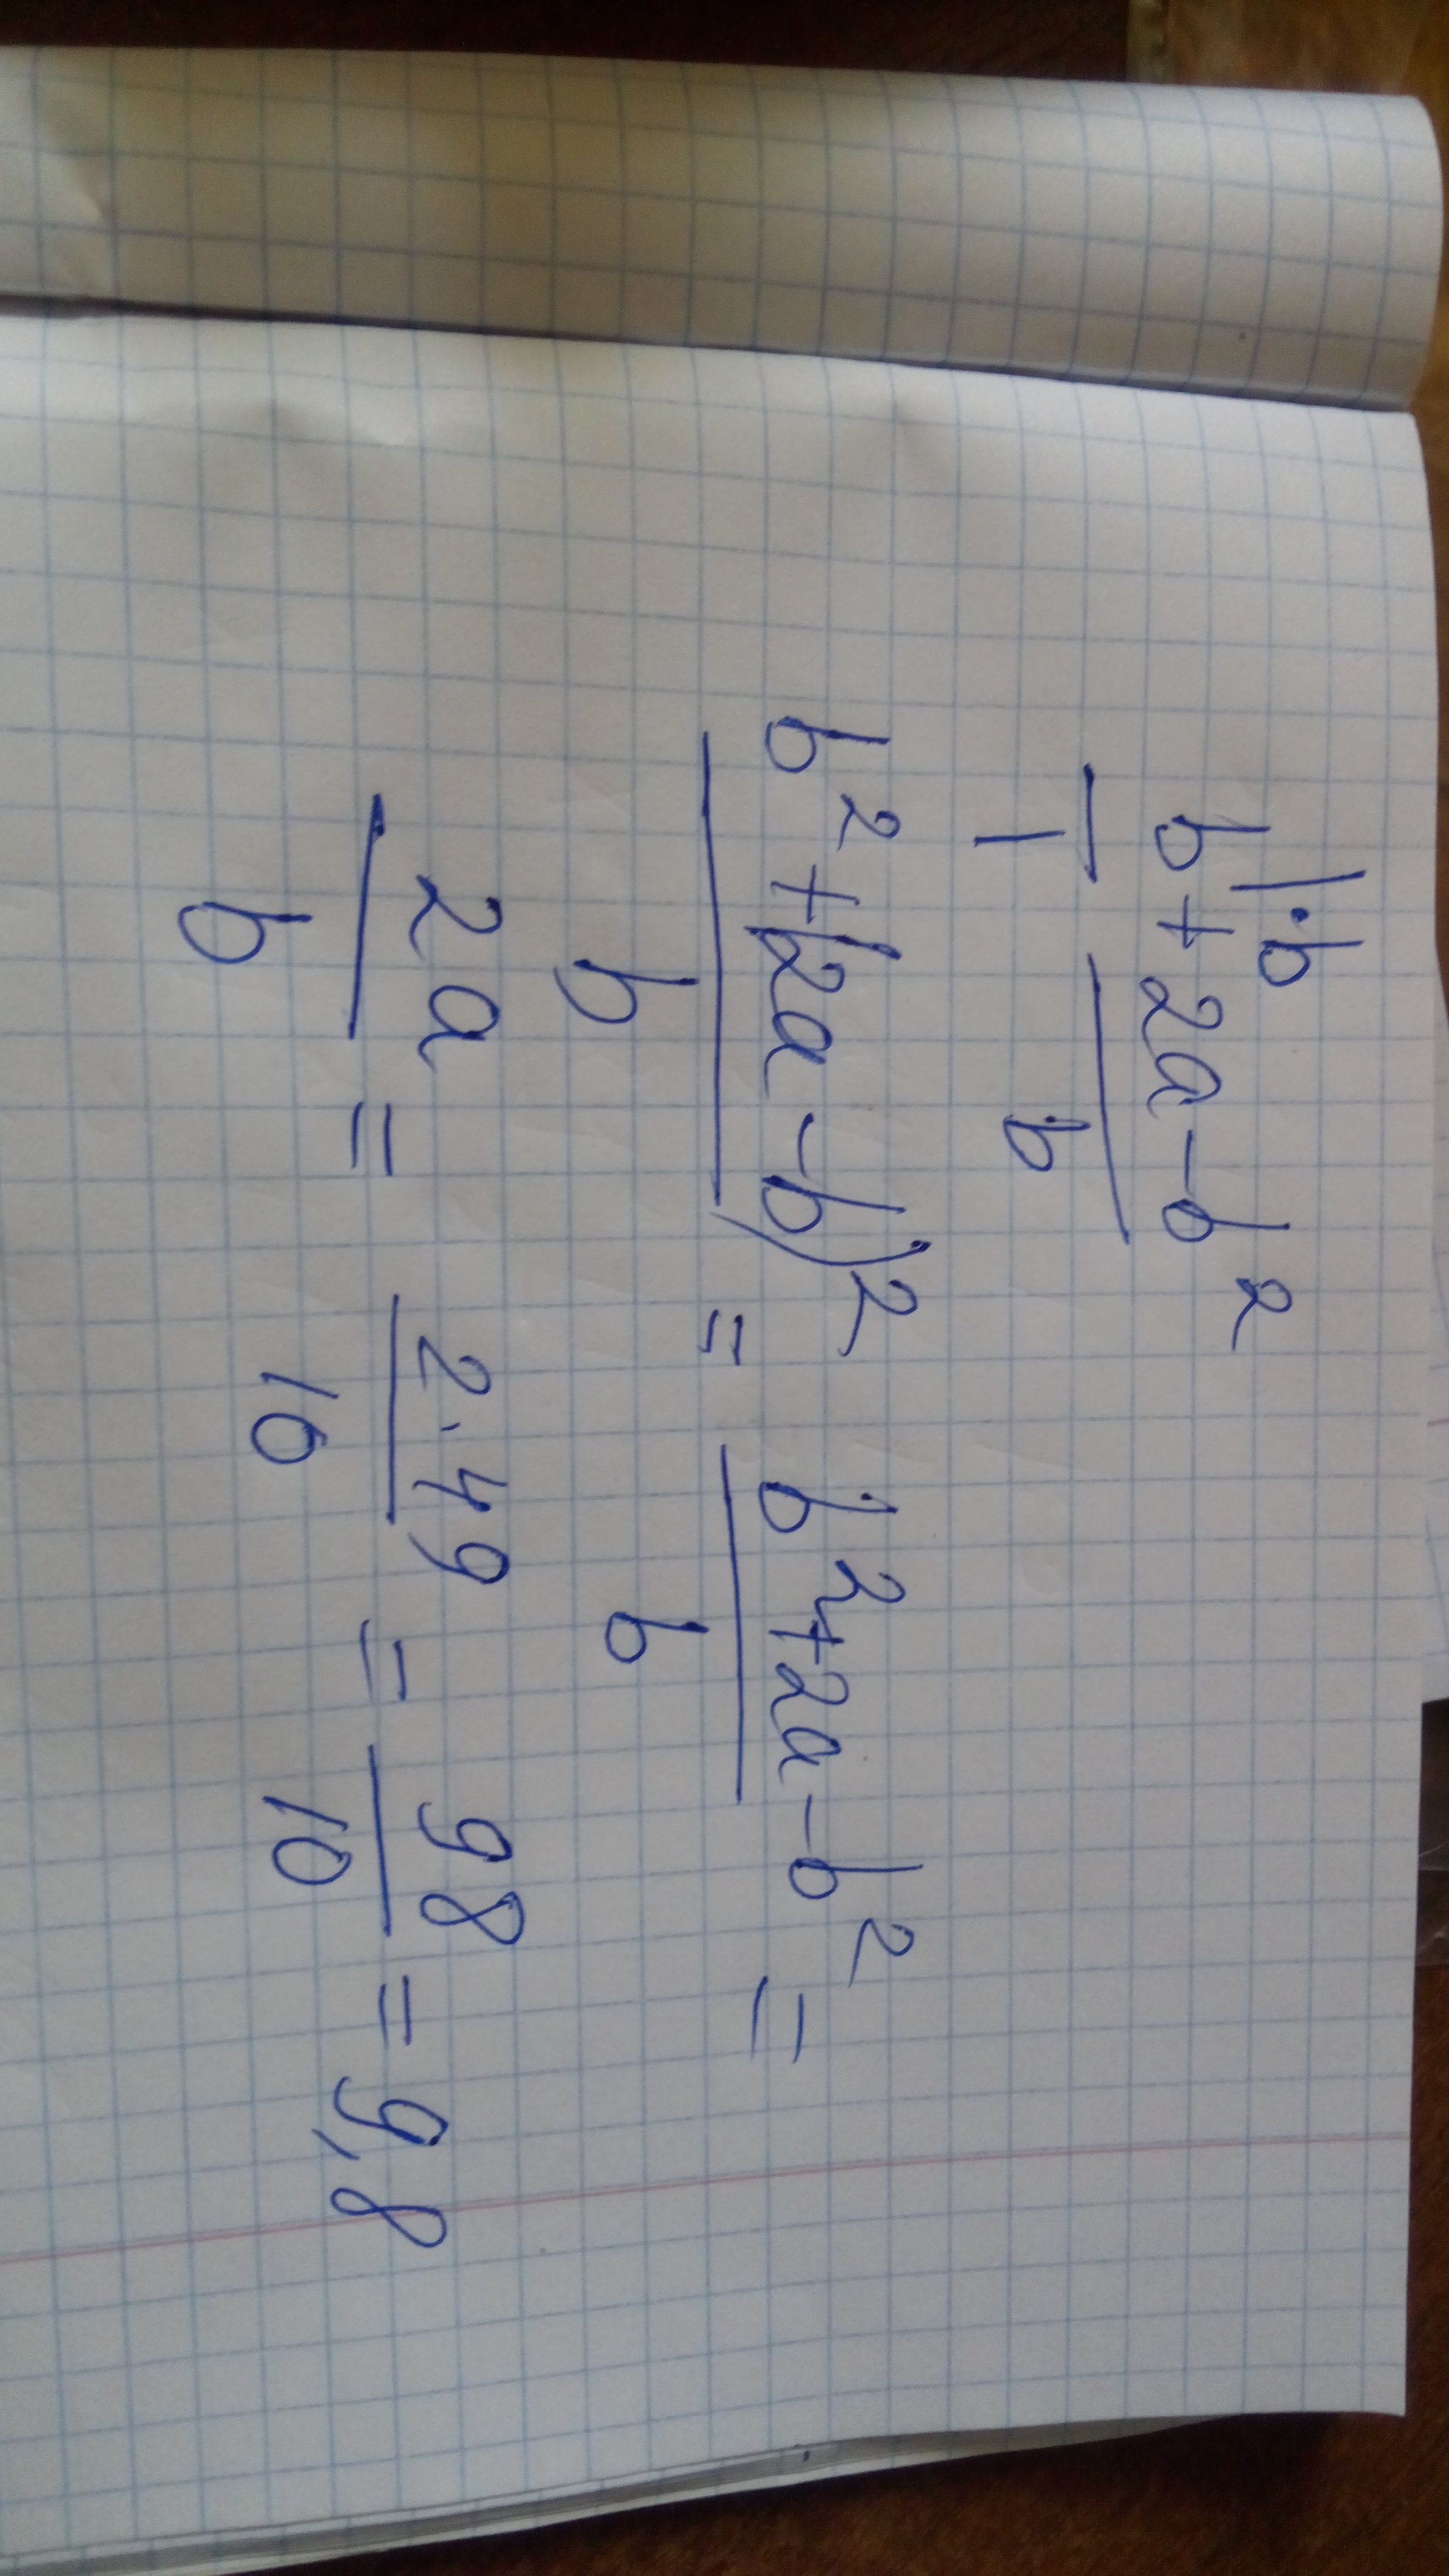 b|·b/1 + 2a-b²/b
b²+(2a-b)²/b = b²+2a-b²/b =
2a/b = 2·49/10 = 98/10 = 9,8